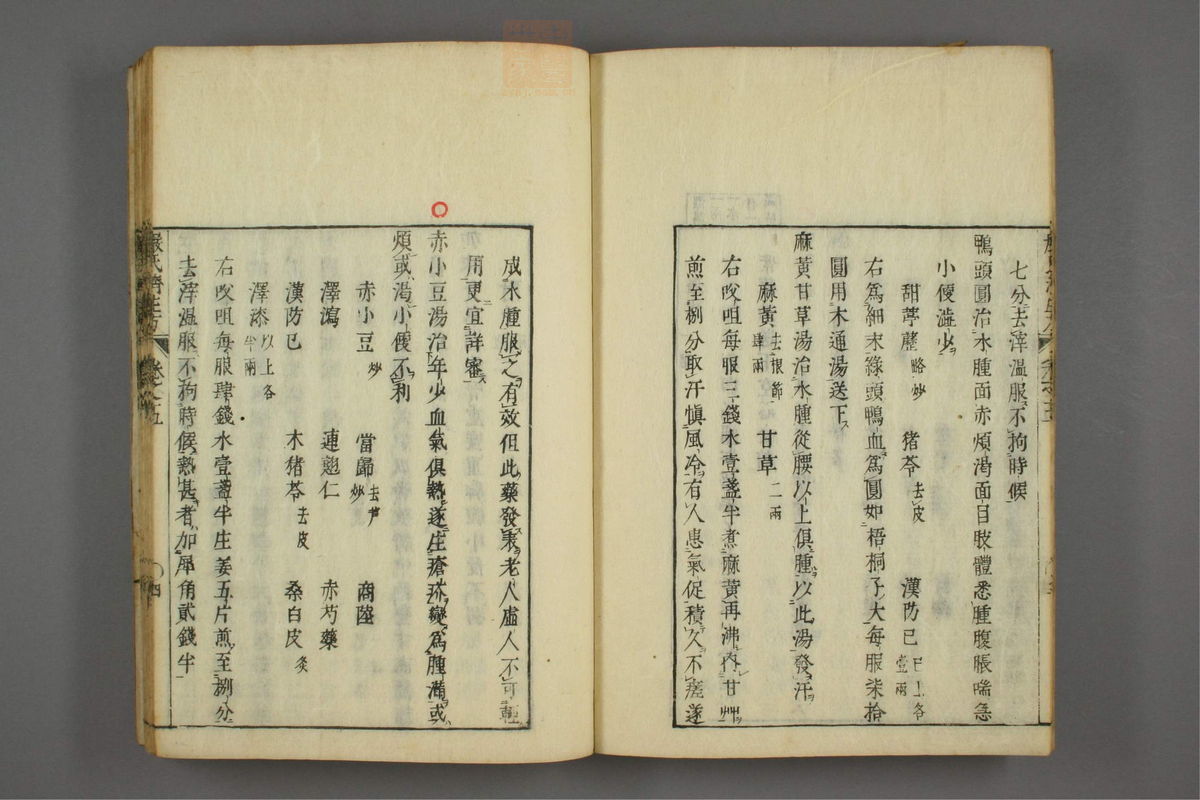 七分去滓溫服不拘時候
鴨頭圓治水腫面赤煩渴面目肢體悉腫腹脹喘急
小便澁少
甜葶藶略炒 猪苓去皮 漢防已已上各壹兩
右爲細末綠頭鴨血爲圓如梧桐子大每服柒拾
圓用木通湯送下
麻黃甘草湯治水腫從腰以上俱腫以此湯發汗
麻黃去根節肆兩 甘草二兩
右㕮咀每服三錢水壹盞半煮麻黃再沸內甘艸
煎至捌分取汗慎風冷有人患氣促積久不瘥遂
成水腫服之有效但此藥發表老人虛人不可輕
用更宜詳審
赤小豆湯治年少血氣俱熱遂生瘡疥變爲腫滿或
煩或渴小便不利
赤小豆炒 當歸去芦炒 商陸
澤瀉 連翹仁 赤芍藥
漢防已 木猪苓去皮 桑白皮炙
澤漆以上各半兩
右㕮咀每服肆錢水壹盞半生姜五片煎至捌分
去滓溫服不拘時候熱甚者加犀角貳錢半
嚴氏濟生方 卷之五
四